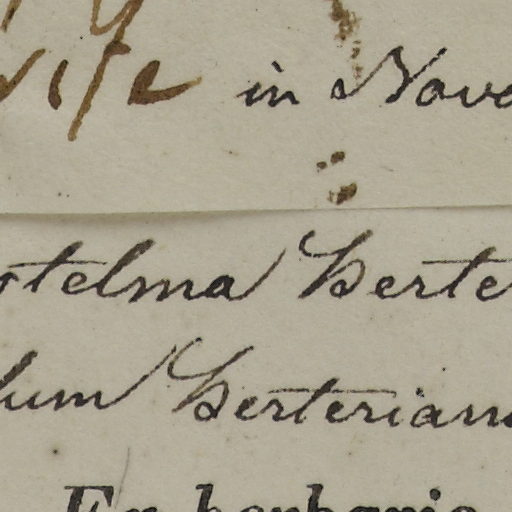 in Nova
stelma Berte
lum Berterian
Ex herbario